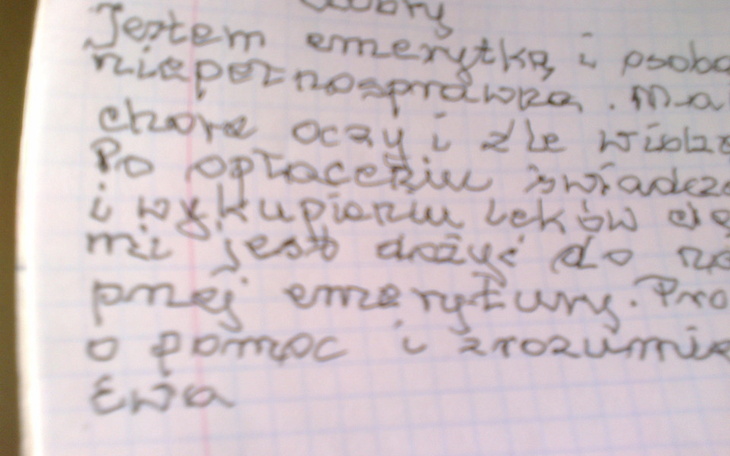 dobry
Jestem emerytką i osobą
niepełnosprawną. Ma
chore oczy i źle widz
Po opłaceniu świadcze
i wykupieniu leków cię
mi jest dożyć do na
pnej emerytury. Pro
o pomoc i zrozumie
Ewa